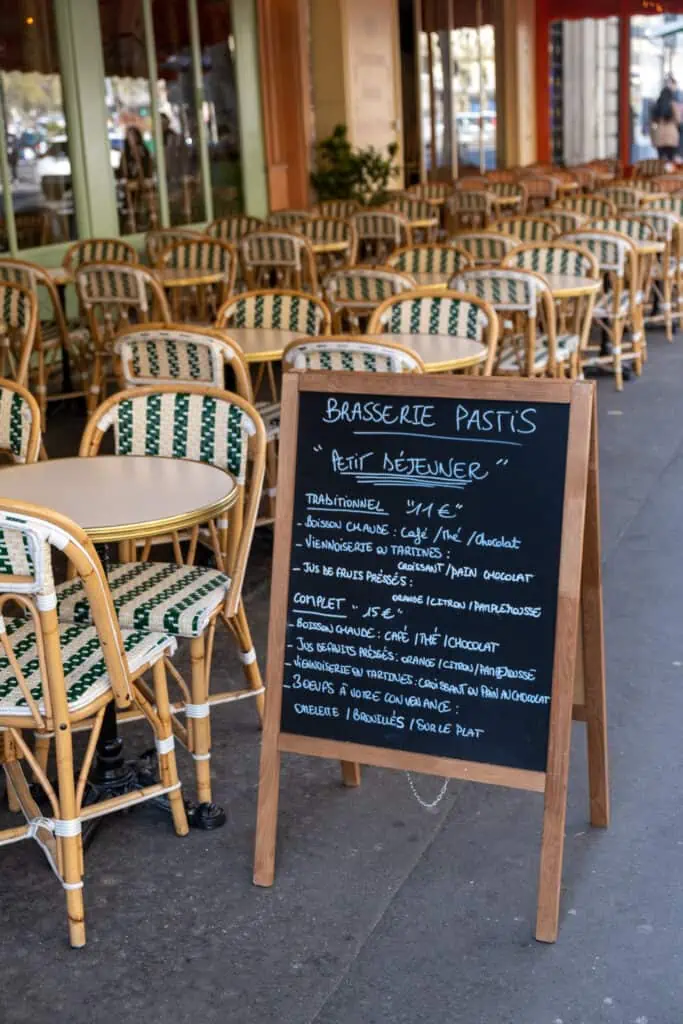 BRASSERIE PASTIS
"PETIT DÉJEUNER"
TRADITIONNEL "11€"
- BOISSON CHAUDE : Café / Thé / Chocolat
- VIENNOISERIE OU TARTINES :
CROISSANT / PAIN CHOCOLAT
- JUS DE FRUITS PRÉSSÉS :
ORANGE / CITRON / PAMPLEMOUSSE
COMPLET "15€"
- BOISSON CHAUDE : CAFÉ / THÉ / CHOCOLAT
- JUS DE FRUITS PRÉSSÉS : ORANGE / CITRON / PAMPLEMOUSSE
- VIENNOISERIE OU TARTINES : CROISSANT OU PAIN AU CHOCOLAT
- 3 OEUFS À VOTRE CONVENANCE :
OMELETTE / BROUILLÉS / SUR LE PLAT